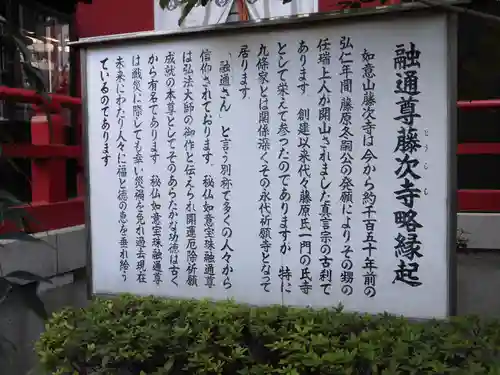 融通尊藤次寺略縁起
とうじ
如意山藤次寺は今から約千百五十年前の
弘仁年間 藤原冬嗣公の発願により その甥の
任瑞上人が開山されました真言宗の古刹で
あります 創建以来代々藤原氏一門の氏寺
として栄えて参ったのでありますが 特に
九條家とは関係深くその永代祈願寺となって
居ります
「融通さん」と言う別称で多くの人々から
信仰されております。秘仏如意宝珠融通尊
は弘法大師の御作と伝えられ開運厄除祈願
成就の本尊としてそのあらたかな功徳は古く
から有名であります 秘仏如意宝珠融通尊
は戦災に際しても幸い災を免れ過去現在
未来にわたり人々に福と徳の恵を垂れ除う
ているのであります